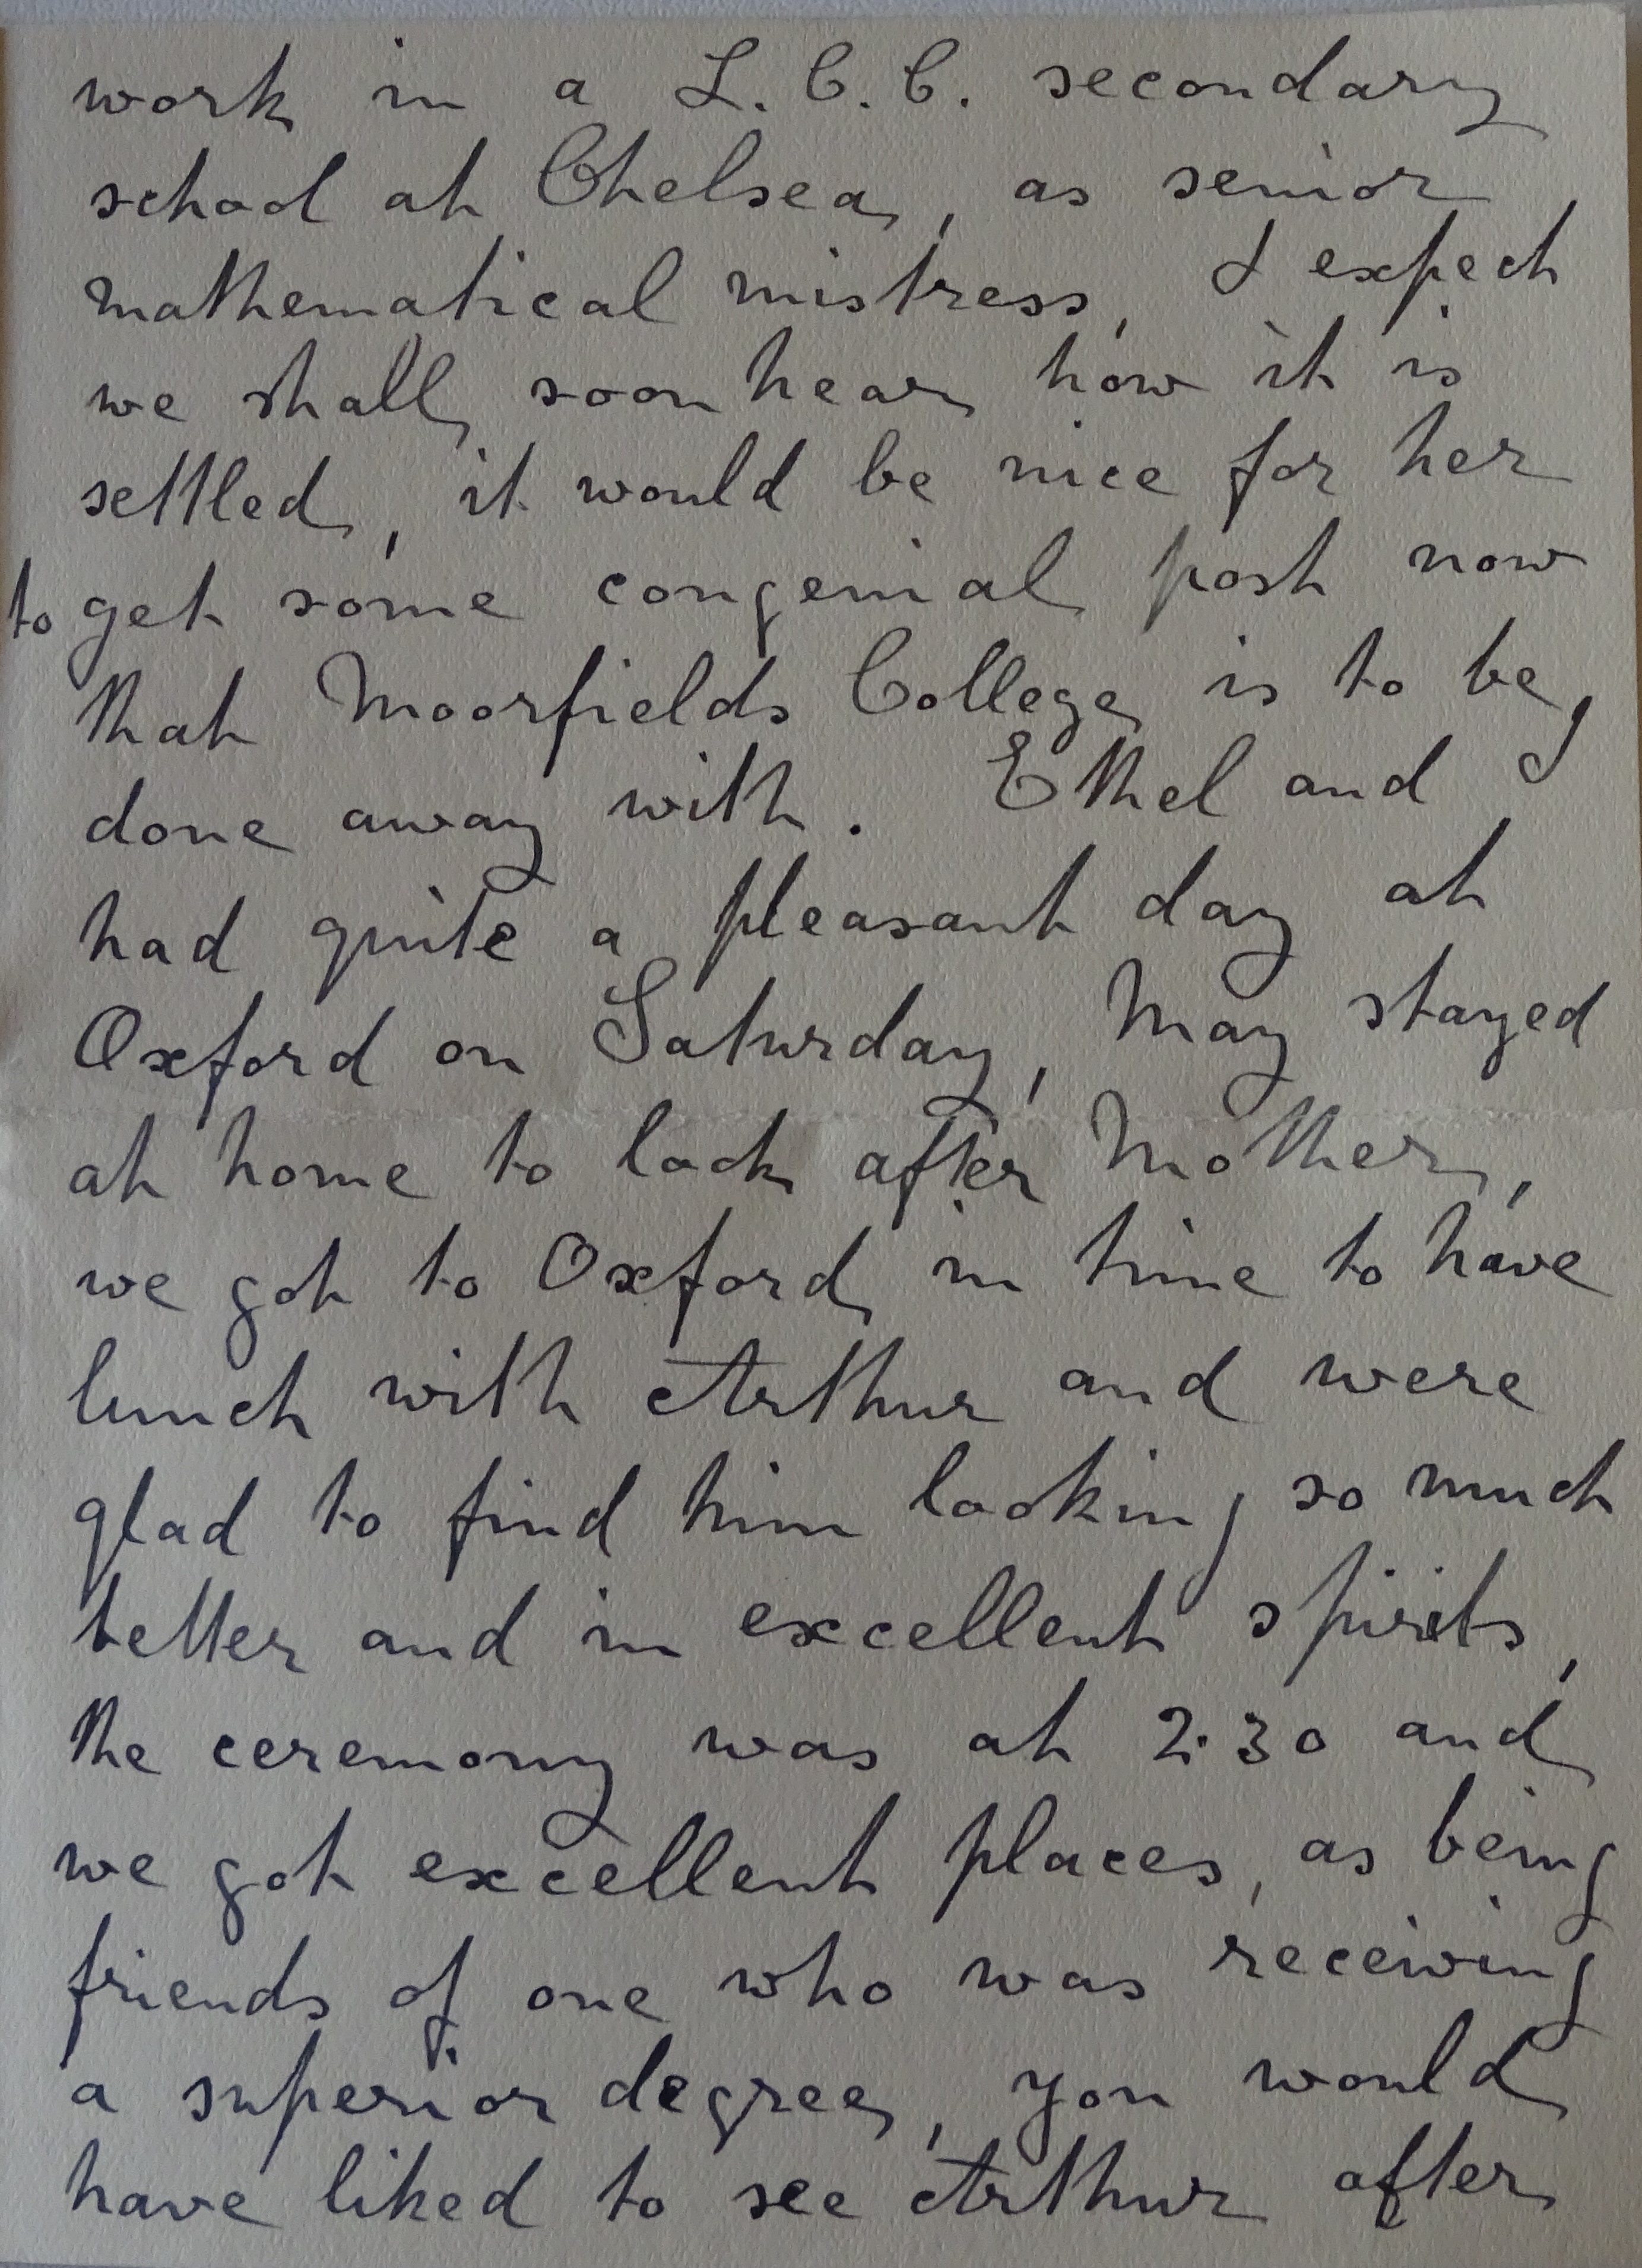 work in a L.C.C. secondary
school at Chelsea, as senior
mathematical mistress, I expect
we shall soon hear how it is
settled, it would be nice for her
to get some congenial post now
that Moorfields College is to be
done away with. Ethel and I
had quite a pleasant day at
Oxford on Saturday, May stayed
at home to look after Mother,
we got to Oxford in time to have
lunch with Arthur and were
glad to find him looking so much
better and in excellent spirits,
the ceremony was at 2.30 and
we got excellent places, as being
friends of one who was receiving
a superior degree, you would
have liked to see Arthur after